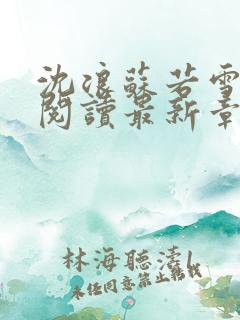 沈浪蘇若雪
閱讀最新章
林海聽濤l
未經同意禁止轉載